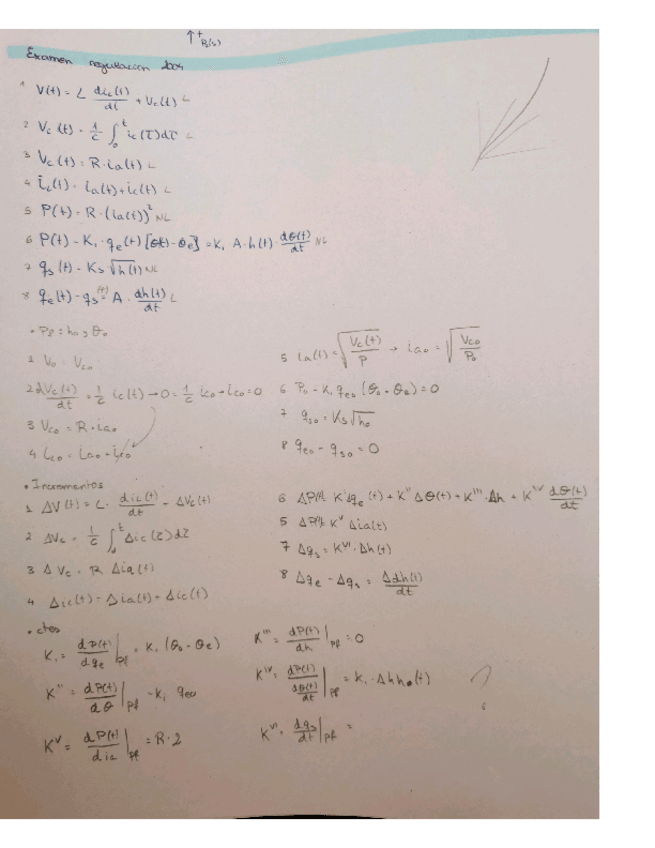 ↑+ P2(s)
Examen regulacion 2004
1 V(t) = L dic(t)/dt + Vc(t) L
2 Vc(t) = 1/C ∫₀ᵗ ic(τ)dτ L
3 Vc(t) = R·ia(t) L
4 ic(t) = ia(t)+ic(t) L
5 P(t) = R·(ia(t))² NL
6 P(t) - K1·qe(t)[θ(t)-θe] = K1 A·h(t)·dθ(t)/dt NL
7 qs(t) = Ks√h(t) NL
8 qe(t) - qs(t) = A·dh(t)/dt L
• Pf: ho, θo
1 Vo = Vco
2 dVc(t)/dt = 1/C ic(t) → 0 = 1/C ico → ico = 0
3 Vco = R·iao
4 ico = iao - ico
5 ia(t) = √(Vc(t)/P) → iao = √(Vco/Po)
6 Po - K1 qeo (θo - θe) = 0
7 qso = Ks√ho
8 qeo - qso = 0
• Incrementos
1 ΔV(t) = L· dic(t)/dt - ΔVc(t)
2 ΔVc = 1/C ∫₀ᵗ Δic(τ)dτ
3 ΔVc = R Δia(t)
4 Δic(t) = Δia(t) + Δic(t)
6 ΔP(t) = K'qe(t) + K''Δθ(t) + K'''·Δh + K^IV dθ(t)/dt
5 ΔP(t) = K^V Δia(t)
7 Δqs = K^VI·Δh(t)
8 Δqe - Δqs = Δdh(t)/dt
• ctes
K1 = dP(t)/dqe |pf = K1 (θo - θe)
K'' = dP(t)/dθ |pf = K1 qeo
K^V = dP(t)/dia |pf = R·2
K''' = dP(t)/dh |pf = 0
K^IV = dP(t)/(dθ(t)/dt) |pf = K1·Ahho(t)
K^VI = dqs/dt |pf =